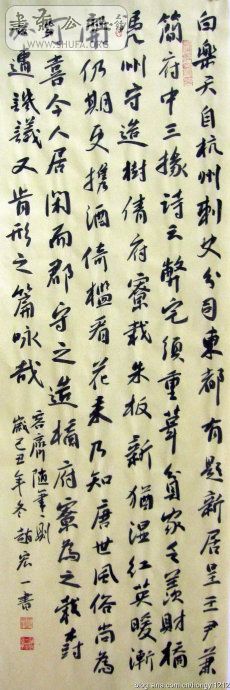 白樂天自杭州刺史分司東都有題新居呈王尹兼
簡府中三掾詩云弊宅須重葺貧家乏羨財橋
憑州守造樹倩府寮栽朱板新猶濕紅英暖漸
開仍期更攜酒倚檻看花來乃知唐世風俗尚為
可喜今人居閑而郡守之造橋府寮為之栽樹
必遭譏議又肯形之篇詠哉
容齊随筆一則
歲己丑年冬趙宏一書
WWW.SHUFA.ORG
blog.sina.com.cn/hongyi1212